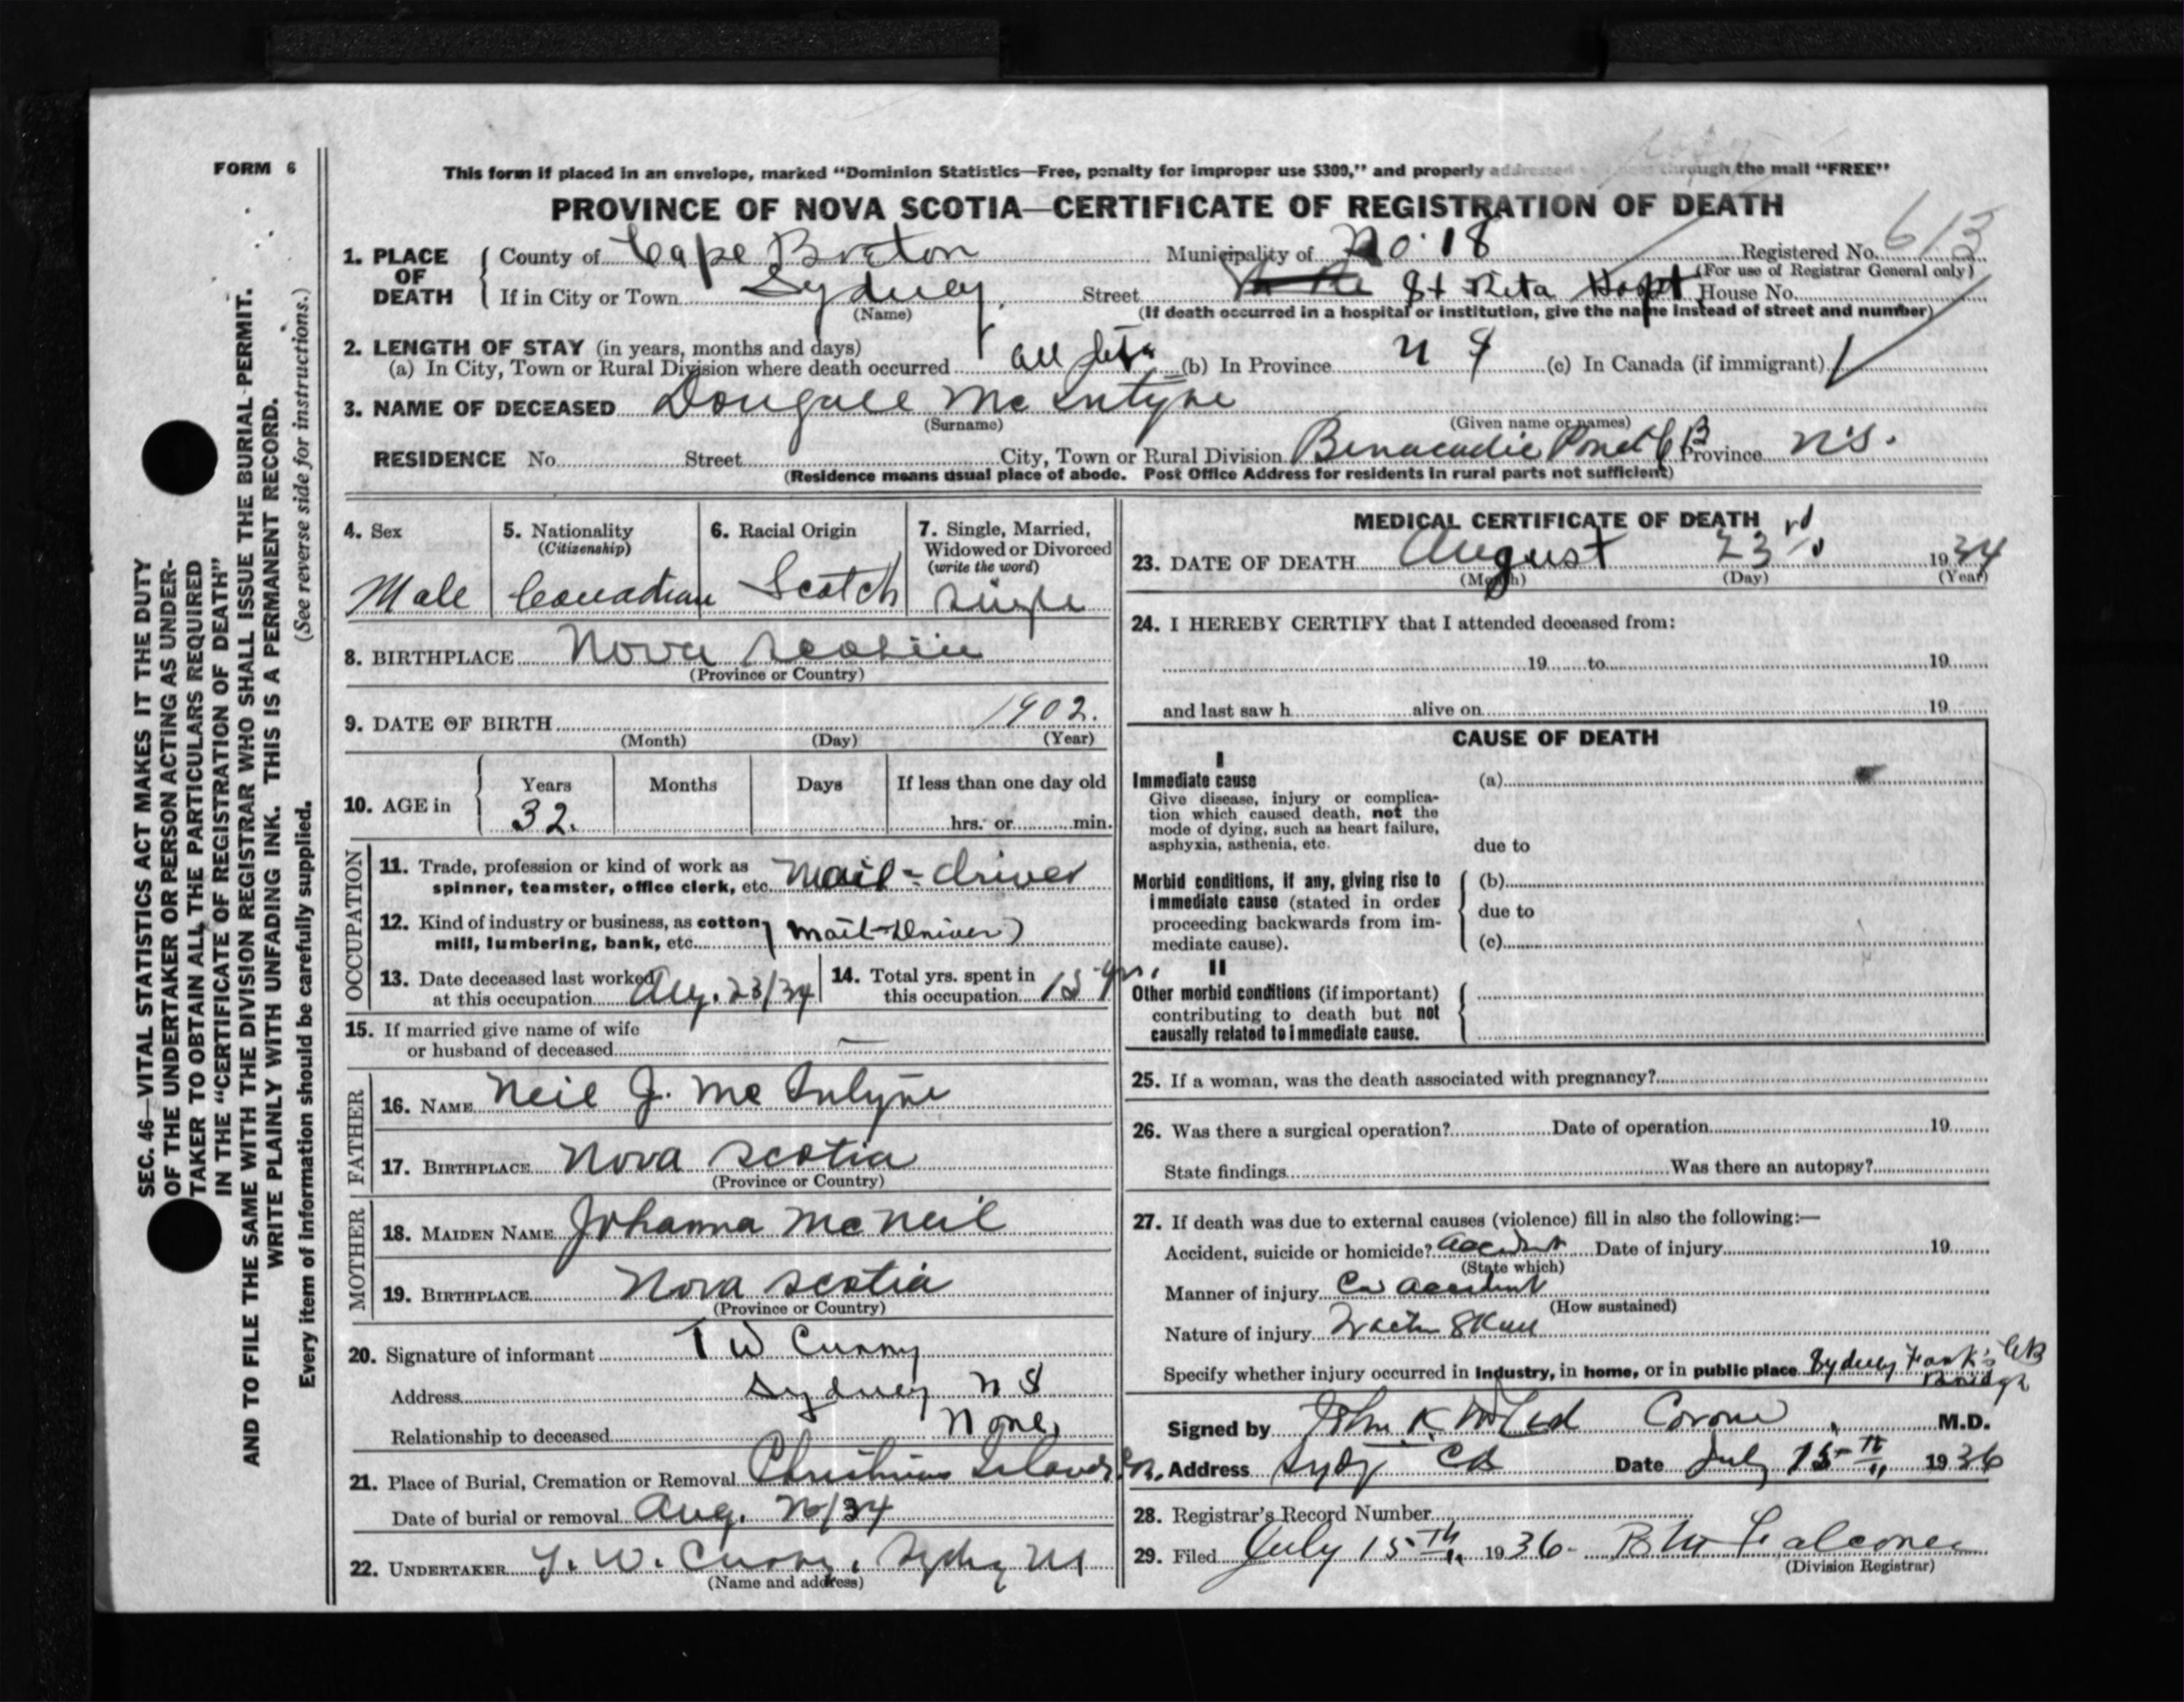 FORM 6
This form if placed in an envelope, marked "Dominion Statistics—Free, penalty for improper use $300," and properly addressed through the mail "FREE"
PROVINCE OF NOVA SCOTIA—CERTIFICATE OF REGISTRATION OF DEATH
1. PLACE OF DEATH
County of Cape Breton Municipality of No. 18 Registered No. 613
(For use of Registrar General only)
If in City or Town Sydney, Street St Rita Hospt House No.
(Name) (If death occurred in a hospital or institution, give the name instead of street and number)
2. LENGTH OF STAY (in years, months and days)
(a) In City, Town or Rural Division where death occurred all life (b) In Province N S (c) In Canada (if immigrant)
3. NAME OF DECEASED Dougall Mc Intyre
(Surname) (Given name or names)
RESIDENCE No. Street City, Town or Rural Division Benacadie Pond C B Province N.S.
(Residence means usual place of abode. Post Office Address for residents in rural parts not sufficient)
4. Sex
Male
5. Nationality
(Citizenship)
Canadian
6. Racial Origin
Scotch
7. Single, Married,
Widowed or Divorced
(write the word)
Single
8. BIRTHPLACE Nova Scotia
(Province or Country)
9. DATE OF BIRTH 1902.
(Month) (Day) (Year)
10. AGE in
Years Months Days If less than one day old
32. hrs. or min.
OCCUPATION
11. Trade, profession or kind of work as
spinner, teamster, office clerk, etc. Mail-driver
12. Kind of industry or business, as cotton
mill, lumbering, bank, etc. (Mail-Driver)
13. Date deceased last worked
at this occupation Aug. 23/34
14. Total yrs. spent in
this occupation 15 yrs.
15. If married give name of wife
or husband of deceased —
FATHER
16. NAME Neil J. Mc Intyre
17. BIRTHPLACE Nova Scotia
(Province or Country)
MOTHER
18. MAIDEN NAME Johanna McNeil
19. BIRTHPLACE Nova Scotia
(Province or Country)
20. Signature of informant T W Curry
Address Sydney N S
Relationship to deceased None
21. Place of Burial, Cremation or Removal Christmas Island
Date of burial or removal Aug. 26/34
22. UNDERTAKER T. W. Curry, Sydney NS
(Name and address)
MEDICAL CERTIFICATE OF DEATH
23. DATE OF DEATH August 23rd 1934
(Month) (Day) (Year)
24. I HEREBY CERTIFY that I attended deceased from:
19 to 19
and last saw h alive on 19
CAUSE OF DEATH
I
Immediate cause (a)
Give disease, injury or complica-
tion which caused death, not the
mode of dying, such as heart failure,
asphyxia, asthenia, etc. due to
Morbid conditions, if any, giving rise to (b)
immediate cause (stated in order due to
proceeding backwards from im-
mediate cause). (c)
II
Other morbid conditions (if important)
contributing to death but not
causally related to immediate cause.
25. If a woman, was the death associated with pregnancy?
26. Was there a surgical operation? Date of operation 19
State findings Was there an autopsy?
27. If death was due to external causes (violence) fill in also the following:—
Accident, suicide or homicide? Accident Date of injury 19
(State which)
Manner of injury Car accident
(How sustained)
Nature of injury Skull
Specify whether injury occurred in Industry, in home, or in public place Sydney Forks CB
Bridge
Signed by John K McLeod Coroner, M.D.
Address Sydy CB Date July 15th 1936
28. Registrar's Record Number
29. Filed July 15th 1936- B M Falconer
(Division Registrar)
SEC. 46—VITAL STATISTICS ACT MAKES IT THE DUTY
OF THE UNDERTAKER OR PERSON ACTING AS UNDER-
TAKER TO OBTAIN ALL THE PARTICULARS REQUIRED
IN THE "CERTIFICATE OF REGISTRATION OF DEATH"
AND TO FILE THE SAME WITH THE DIVISION REGISTRAR WHO SHALL ISSUE THE BURIAL PERMIT.
WRITE PLAINLY WITH UNFADING INK. THIS IS A PERMANENT RECORD.
Every item of information should be carefully supplied. (See reverse side for instructions.)